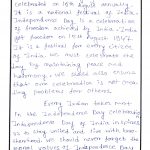 celebrated on 15th August annually.
It is a national festival of India.
Independence Day is a celebration
of freedom achieved by India. India
got freedom on 15th August 1947.
It is a festival for every citizen
of India. We must celebrate the
day by maintaining peace and
harmony. We should also ensure
that our celebration is not creating
problems for others.
Every Indian takes part
in the Independence Day celebration.
Independence Day in
us to stay united and live with brotherhood.
We should never forget the
moral values of Independence Day